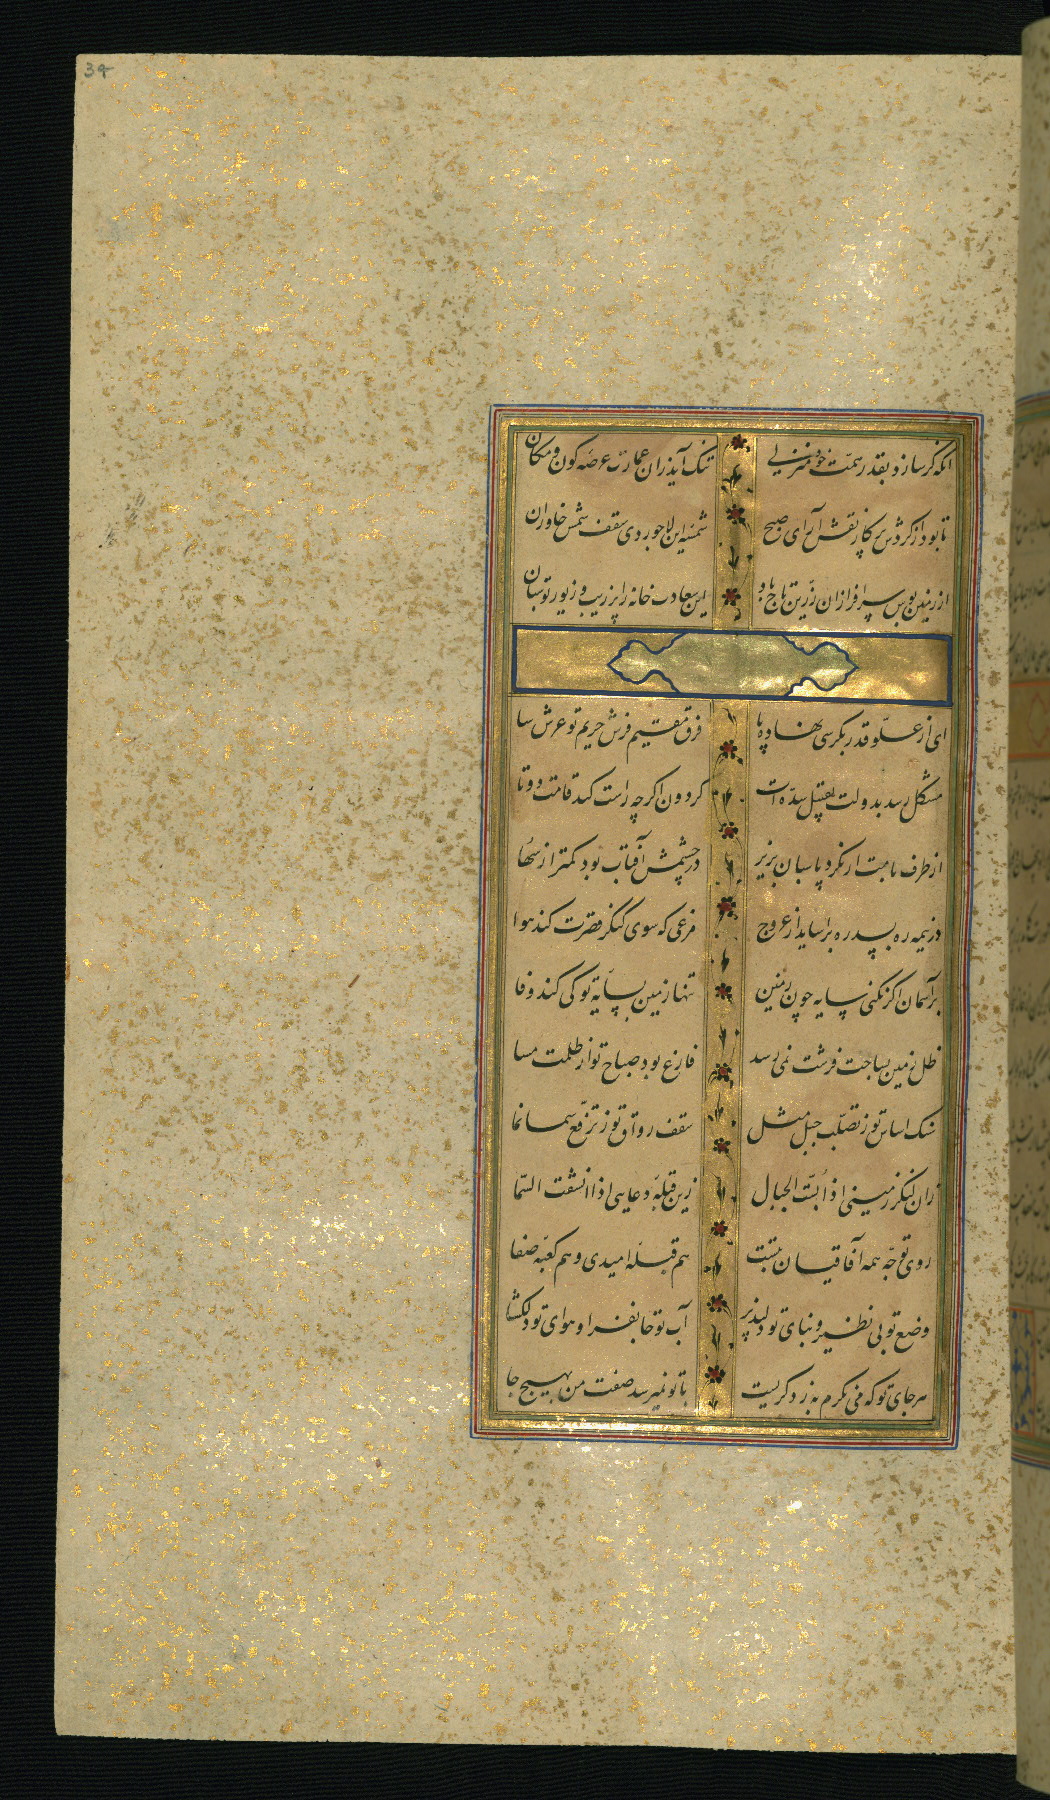 34
آنکه گر سازد بقدر همت خود منزلی تنک آید زان عمارت عرصه کون و مکان
تا بود از گردش پرگار نقش آرای صبح شمسه این لاجوردی سقف شمس خاوران
از زمین بوس سرافرازان زرین تاج باد این سعادت خانه را پر زیب و زیور توامان
ای از علو قدر بکرسی نهاده پا فرق مقیم فرش حریم تو عرش سا
مشکل رسد بدولت تقبیل سده ات گردون اگر چه راست کند قامت دوتا
از طرف بامت ار نگرد پاسبان بزیر در چشمش آفتاب بود کمتر از سها
در نیمه ره بسدره بر اساید از عروج مرغی که سوی کنگر قصرت کند هوا
بر آسمان اگر نکنی سایه چون زمین تنها زمین بسایه تو کی کند وفا
ظل زمین بساحت فرشت نمی رسد فارغ بود صباح تو از ظلمت مسا
سنک اساس تو ز تصلب جبل مثل سقف رواق تو ز ترفع سما نما
زان لنگر زمینی اذا بست الجبال زین قبله دعایی اذا انشقت السما
روی توجه همه آفاقیان بتست هم قبله امیدی و هم کعبه صفا
وضع تو بی نظیر و بنای تو دلپذیر آب تو جانفزا و هوای تو دلگشا
هر جای تو که می نگرم به ز دگریست با تو نمیرسد صفت من بهیچ جا